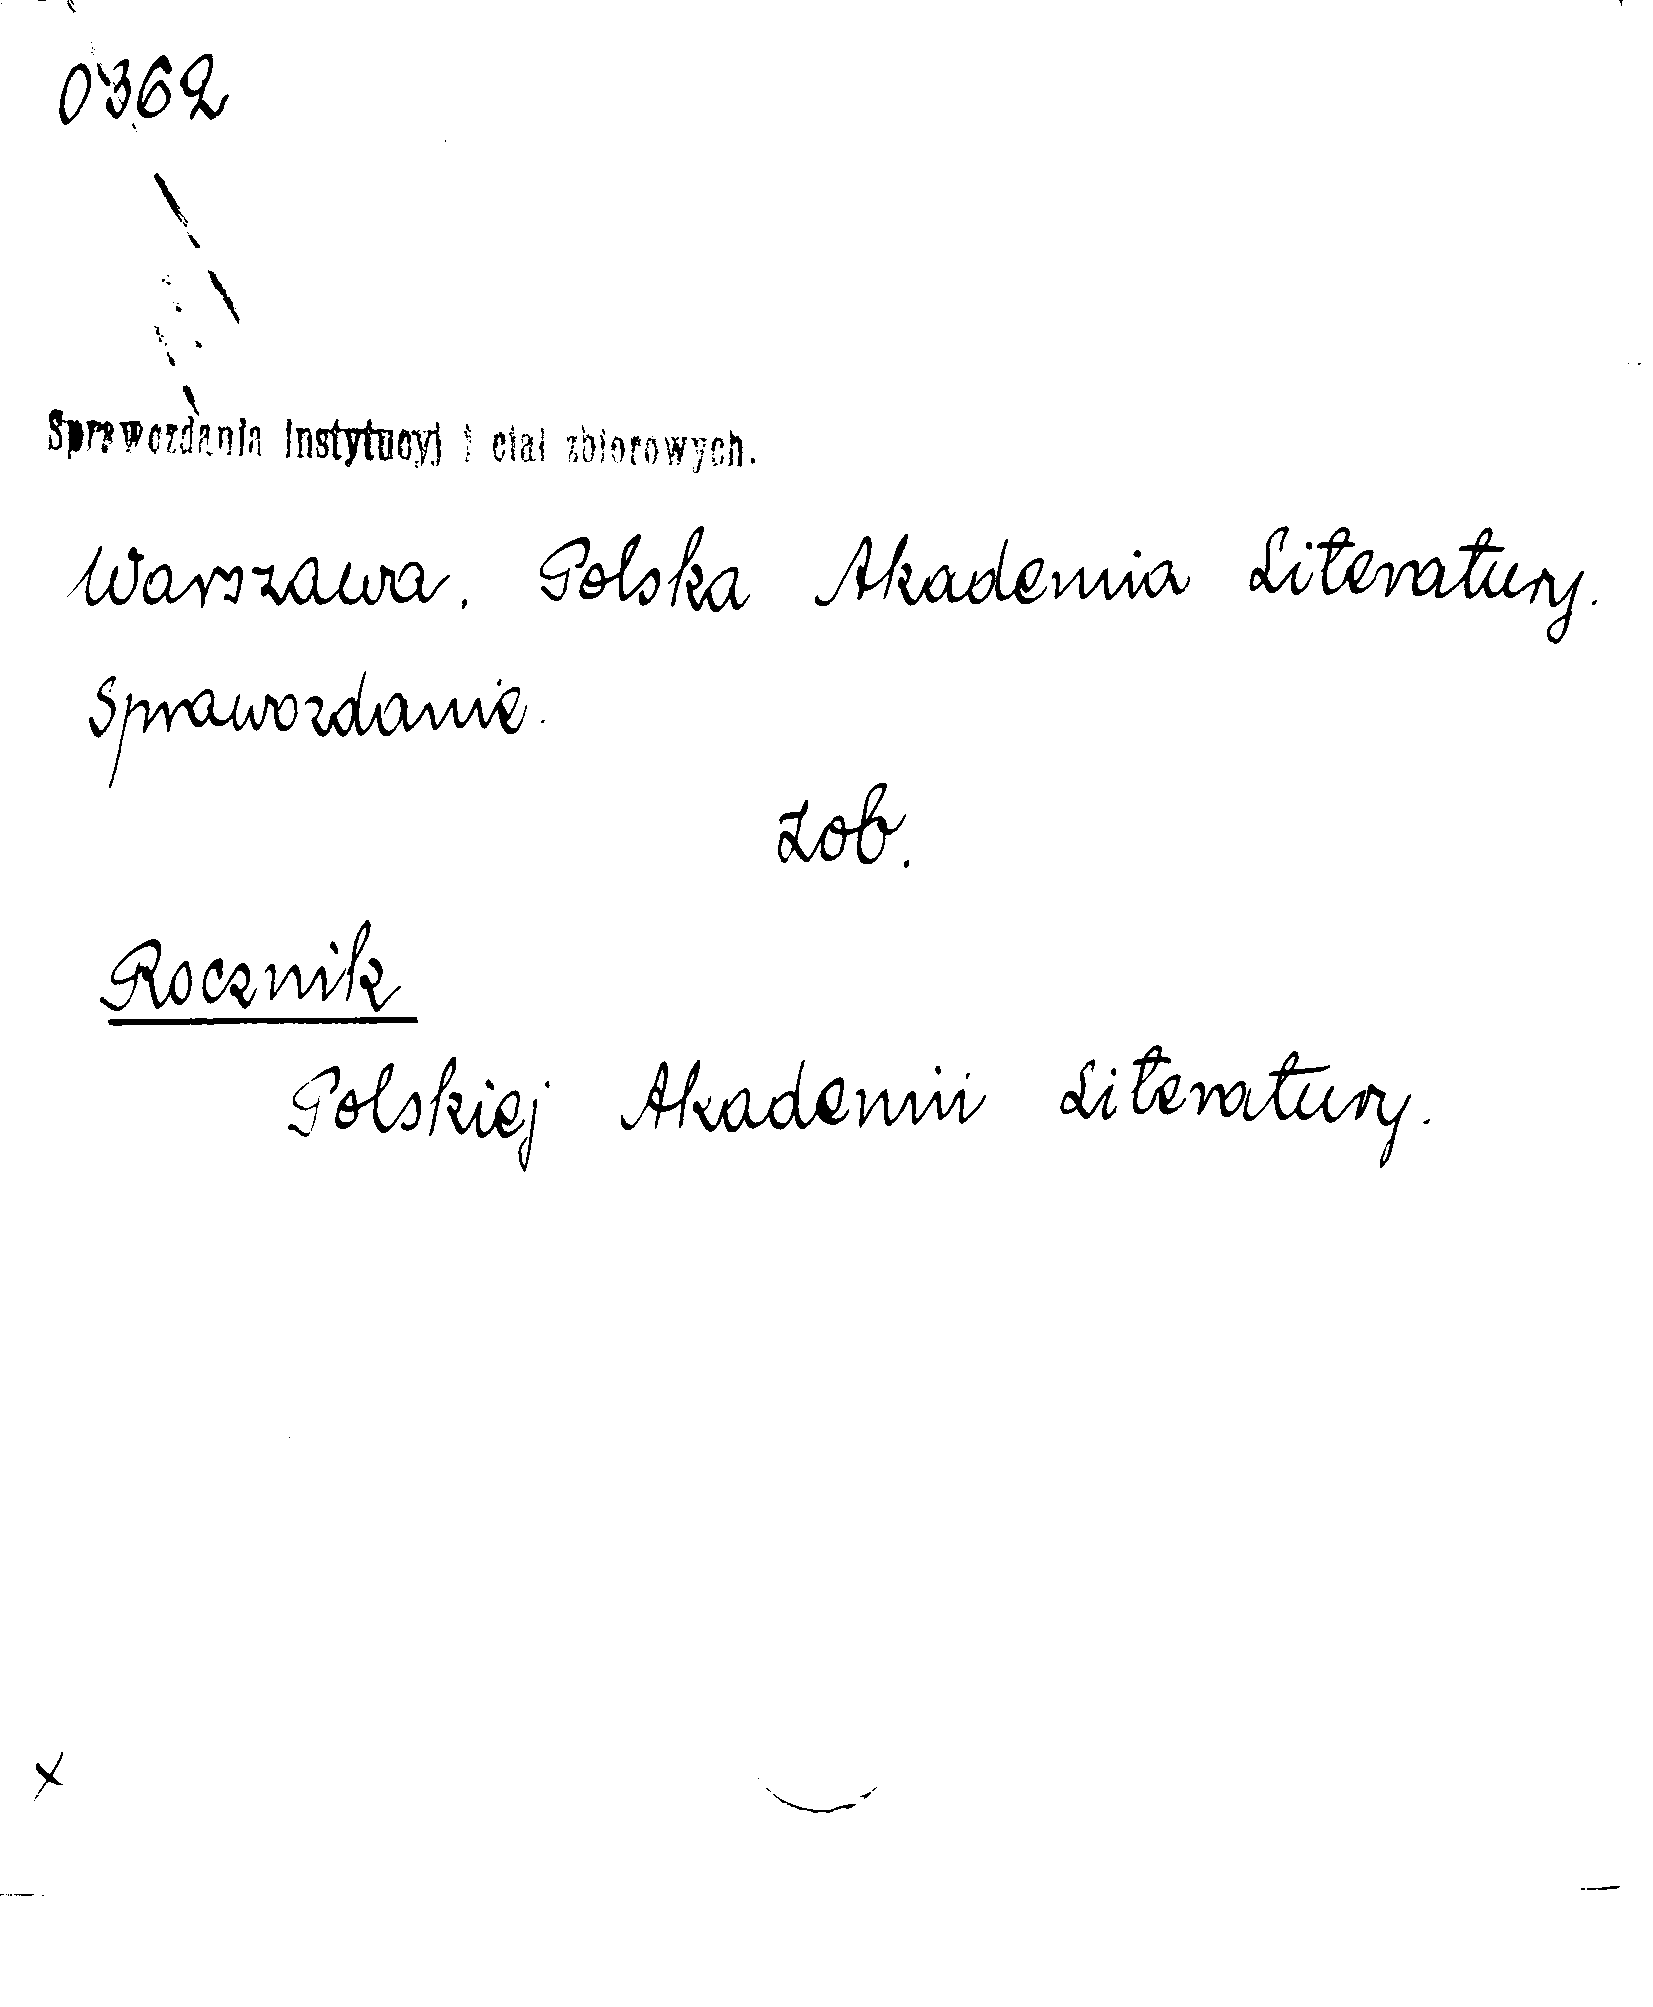 0362
Sprawozdania instytucyj i ciał zbiorowych.
Warszawa. Polska Akademia Literatury.
Sprawozdanie.
Zob.
Rocznik
Polskiej Akademii Literatury.
x